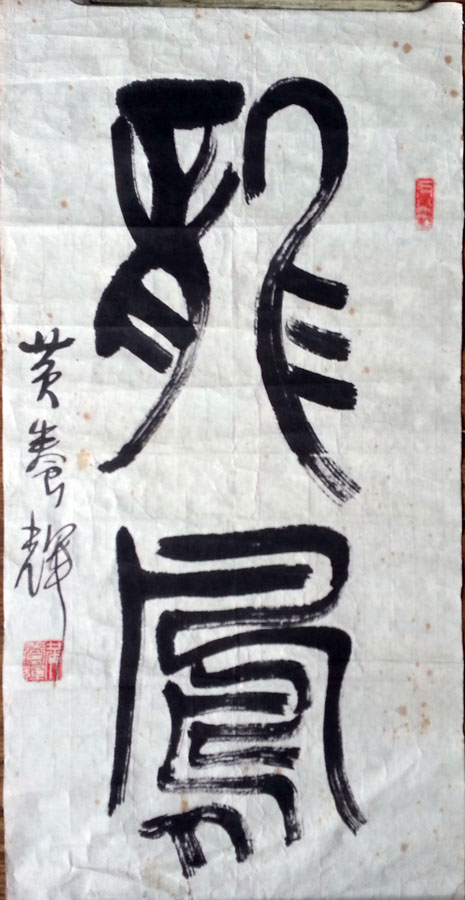 龍鳳
黄養輝